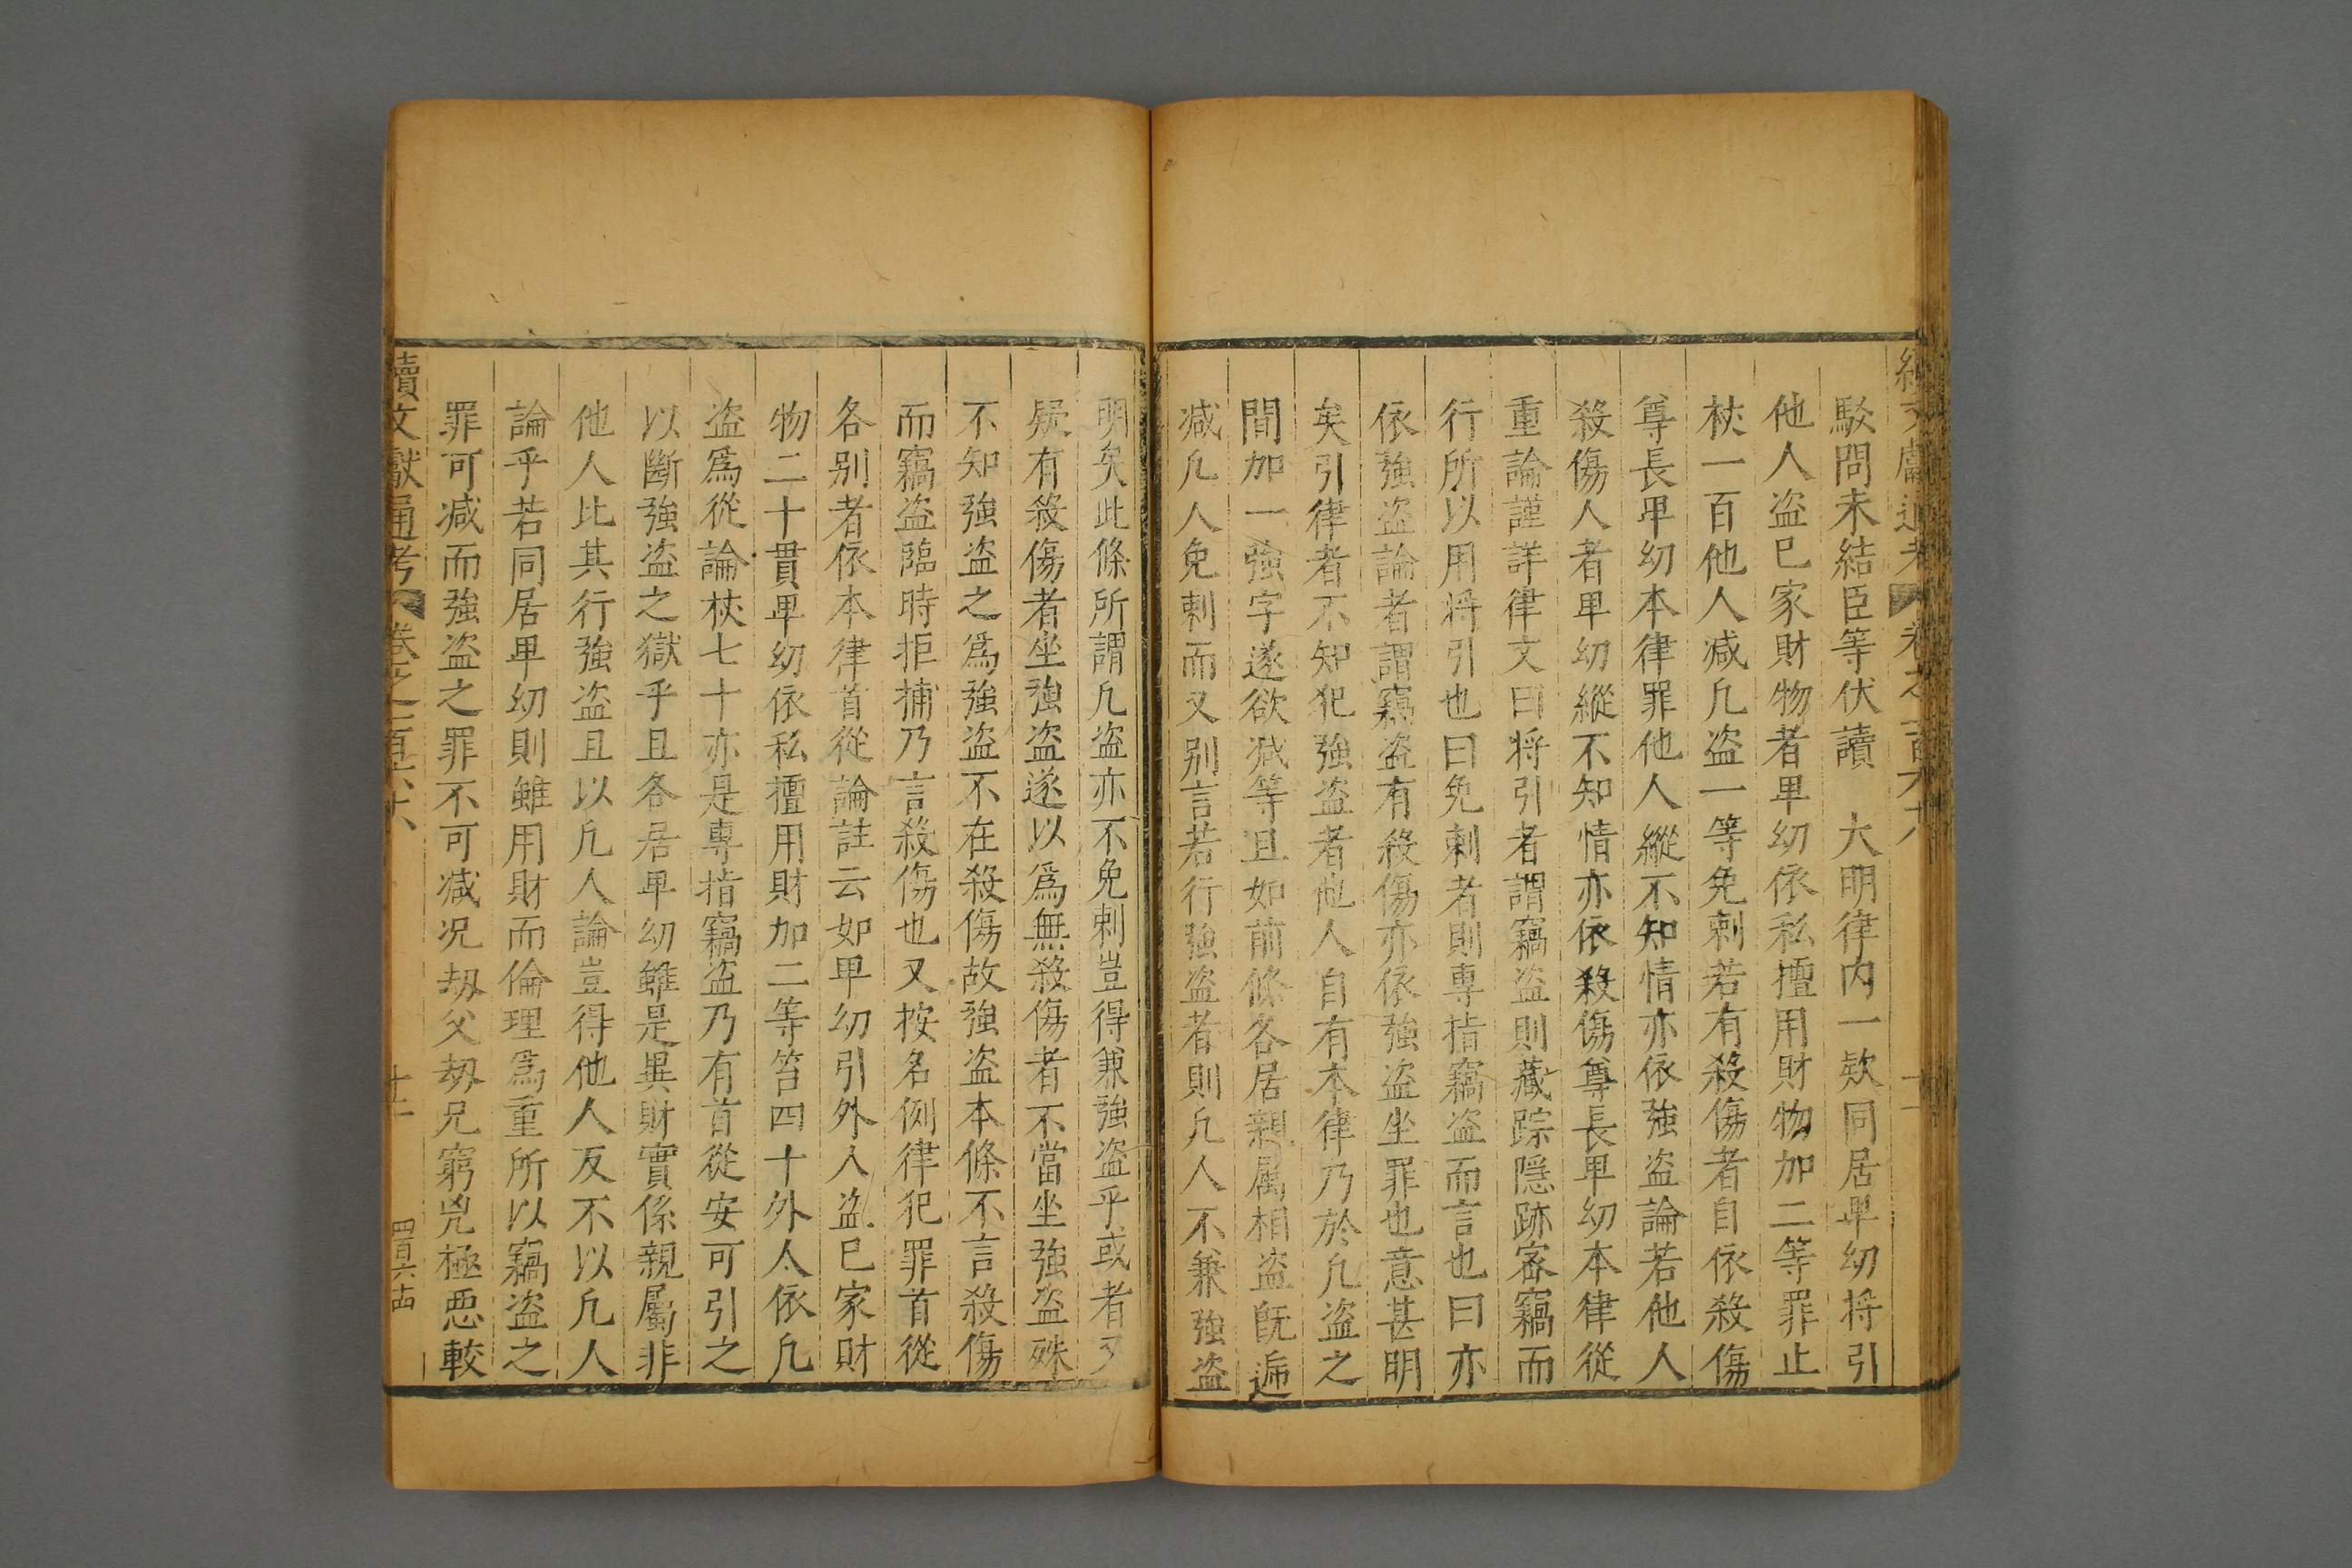 駁問未結臣等伏讀　大明律內一款同居卑幼将引
他人盗巳家財物者卑幼依私擅用財物加二等罪止
杖一百他人减凢盗一等免刺若有殺傷者自依殺傷
尊長卑幼本律罪他人縱不知情亦依強盗論若他人
殺傷人者卑幼縱不知情亦依殺傷尊長卑幼本律從
重論謹詳律文曰将引者謂竊盗則藏踪隱跡宻竊而
行所以用将引也曰免刺者則專指竊盗而言也曰亦
依強盗論者謂竊盗有殺傷亦依強盗坐罪也意甚明
矣引律者不知犯強盗者他人自有本律乃於凢盗之
間加一強字遂欲减等且如前條各居親属相盗旣遍
减凢人免刺而又别言若行強盗者則凢人不兼強盗
明矣此條所謂凢盗亦不免刺豈得兼強盗乎或者又
疑有殺傷者坐強盗遂以爲無殺傷者不當坐強盗殊
不知強盗之爲強盗不在殺傷故強盗本條不言殺傷
而竊盗臨時拒捕乃言殺傷也又按名例律犯罪首從
各别者依本律首從論註云如甲幼引外人盗巳家財
物二十貫卑幼依私擅用財加二等笞四十外人依凢
盗爲從論杖七十亦是專指竊盗乃有首從安可引之
以斷強盗之獄乎且各居卑幼雖是異財實係親屬非
他人比其行強盗且以凢人論豈得他人反不以凢人
論乎若同居卑幼則雖用財而倫理爲重所以竊盗之
罪可减而強盗之罪不可减况刼父刼兄窮兇極惡較
續文獻通考　卷之一百六十八